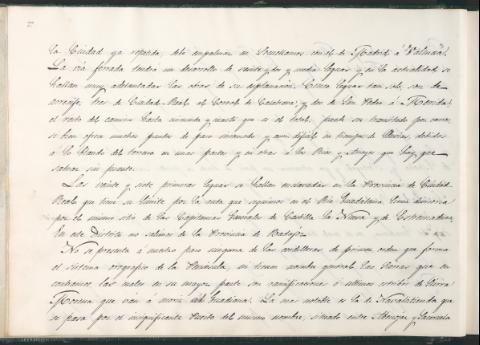 la Ciudad ya repetida, debe empalmar en con el de Madrid á
La via ferrada tendrá un desarrollo de veinte y tres y media leguas y en la actualidad se
hallan muy adelantadas las obras de su esplanacion. Cinco leguas tan solo, son de
arrecife, tres de Ciudad-Real al Corral de Caracuel y dos de San Pedro á Merida:
el resto del camino hasta cincuenta y cuatro que es el total, puede ser transitado por carros,
si bien ofrece muchos puntos de paso incomodo y aun dificil en tiempo de lluvias, debidos
á lo blando del terreno en unas partes, y en otras á los Rios y arroyos que hay que
salvar sin puente.
Las veinte y siete primeras leguas se hallan enclavadas en la Provincia de Ciudad-
Real que tiene su limite por la ruta que seguimos en el Rio Guadalemar, linea divisoria
por el mismo sitio de las Capitanias Generales de Castilla la Nueva y de Estremadura.
En este Distrito no salimos de la Provincia de Badajoz.
No se presenta á nuestro paso ninguna de las cordilleras de primer orden que forman
el sistema orografico de la Peninsula, ni tienen nombre general las Sierras que en-
contramos las cuales en su mayor parte son ramificaciones ó ultimos estribos de Sierra
Morena que van á morir al Guadiana. La mas notable es la de Navalatienda que
se pasa por el insignificante Puerto del mismo nombre, situado entre Abenojar y Saceruela